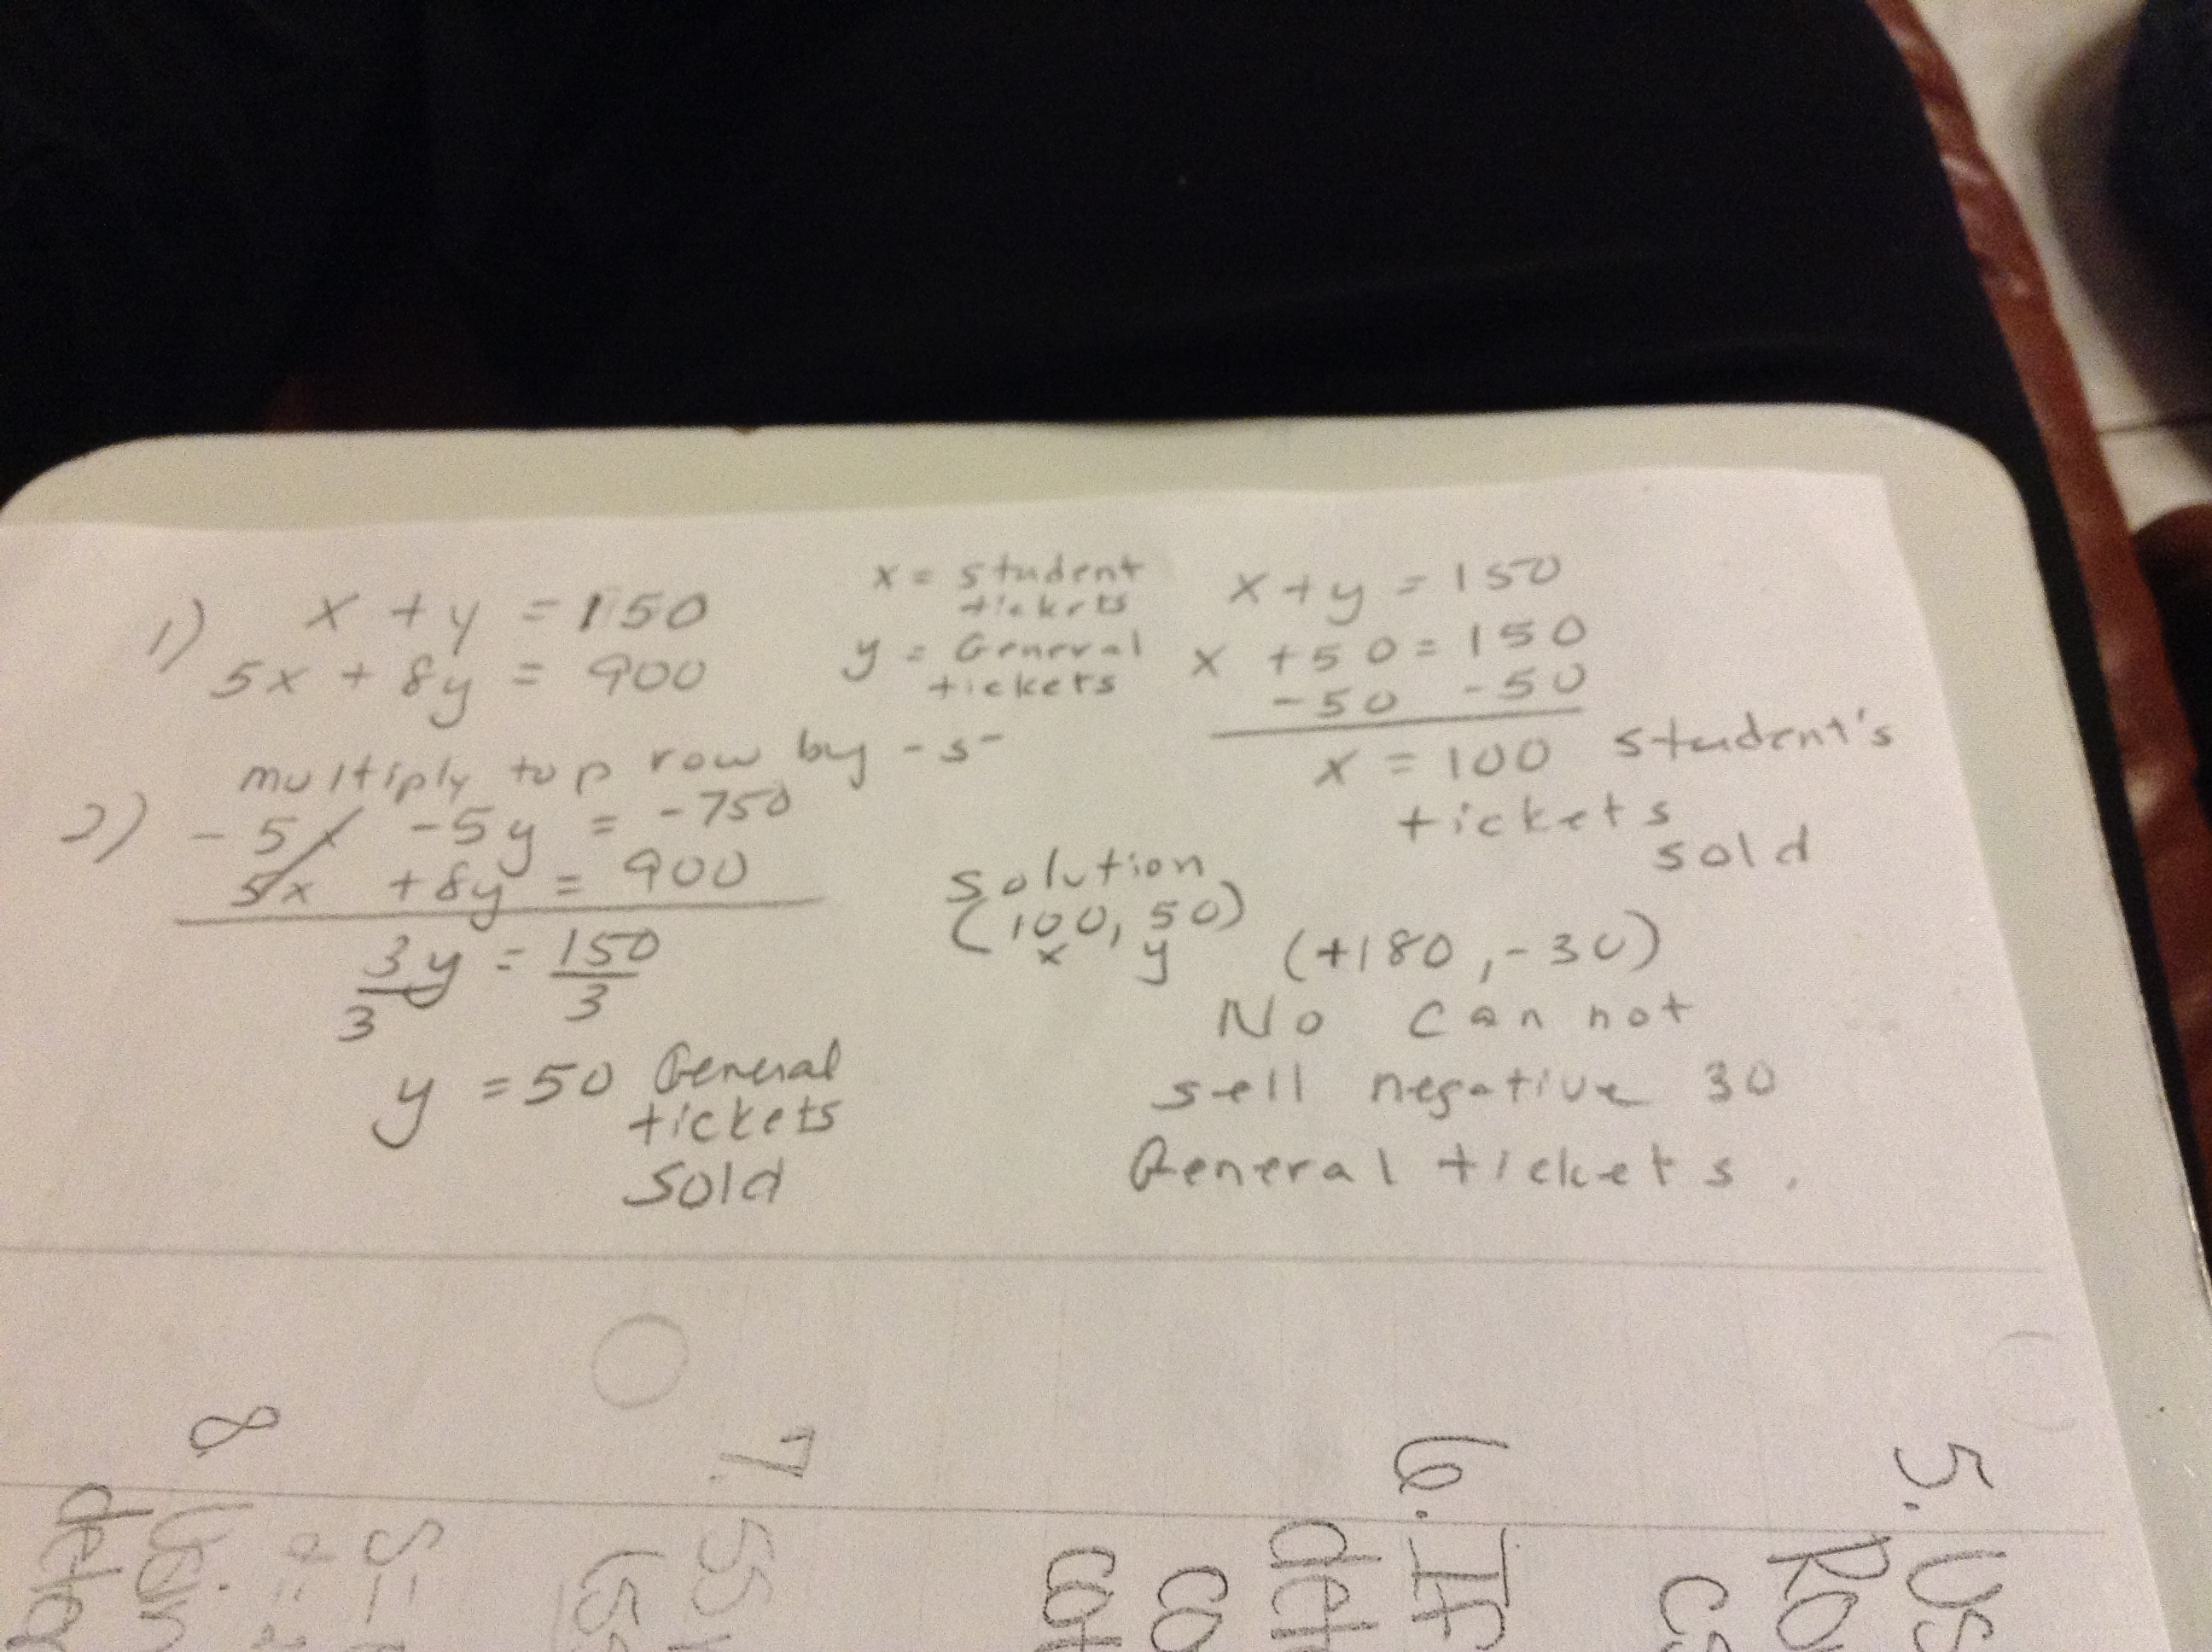 1) x + y = 150
5x + 8y = 900
multiply top row by -5
2) -5x -5y = -750
5x +8y = 900
3y = 150
3 3
y = 50 General
tickets
sold
x = student
tickets
y = General
tickets
x + y = 150
x + 50 = 150
-50 -50
x = 100 student's
tickets
sold
solution
(100, 50)
x y
(+180, -30)
No can not
sell negative 30
General tickets.
5. Us
6. If
det
co
7.
8
det